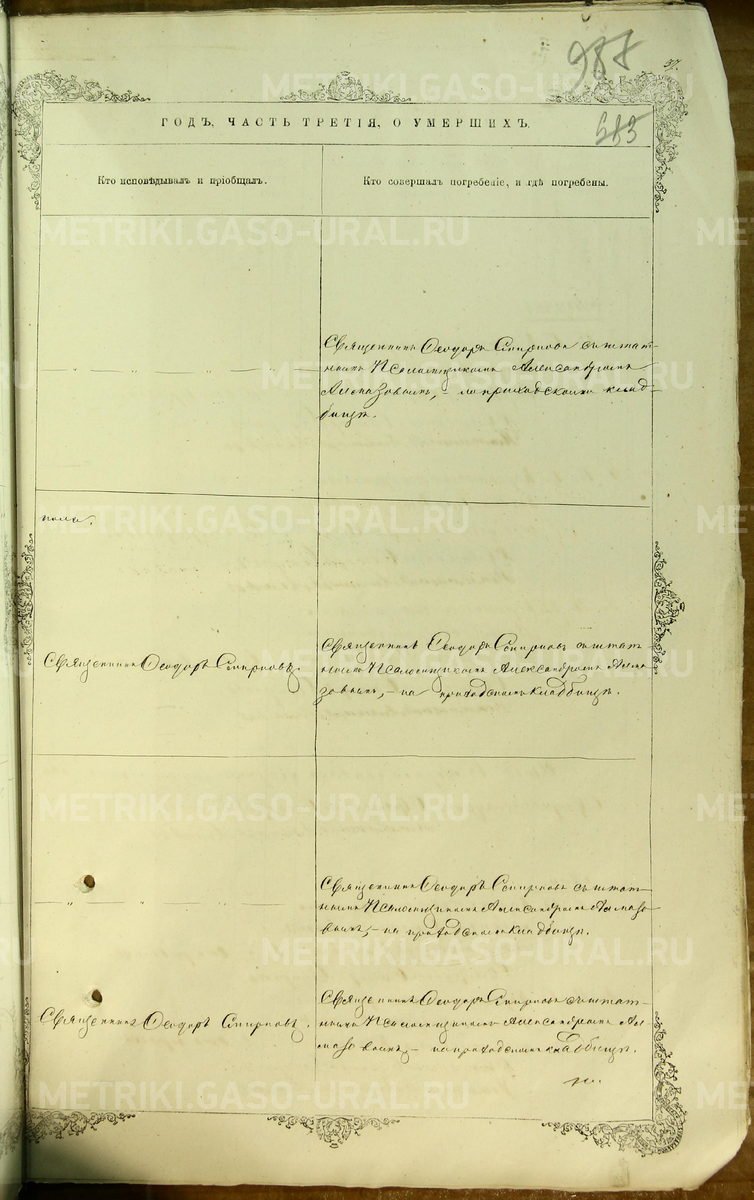 988
37.
683
ГОДЪ, ЧАСТЬ ТРЕТІЯ, О УМЕРШИХЪ.
Кто исповѣдывалъ и пріобщалъ.
Кто совершалъ погребеніе, и гдѣ погребены.
METRIKI.GASO-URAL.RU
Священникъ Ѳеодоръ Смирновъ съ штат-
нымъ Псаломщикомъ Александромъ
Алмазовымъ, – на приходскомъ клад-
бищѣ.
пола.
Священникъ Ѳеодоръ Смирновъ.
Священникъ Ѳеодоръ Смирновъ съ штат-
нымъ Псаломщикомъ Александромъ Алма-
зовымъ, – на приходскомъ кладбищѣ.
Священникъ Ѳеодоръ Смирновъ съ штат-
нымъ Псаломщикомъ Александромъ Алмазо-
вымъ, – на приходскомъ кладбищѣ.
Священникъ Ѳеодоръ Смирновъ.
Священникъ Ѳеодоръ Смирновъ съ штат-
нымъ Псаломщикомъ Александромъ Ал-
мазовымъ, – на приходскомъ кладбищѣ.